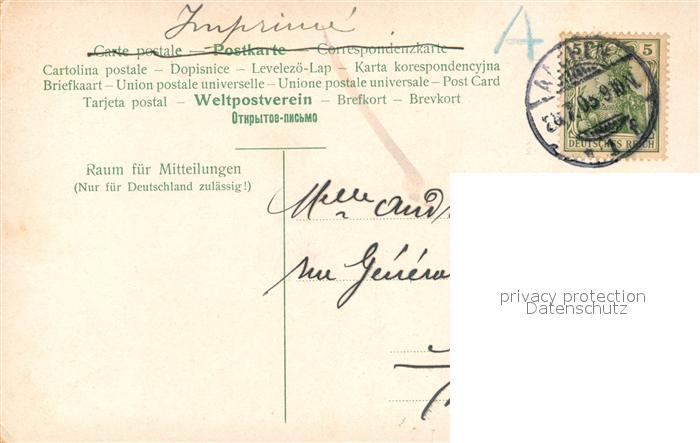 Imprimé
Carte postale — Postkarte — Correspondenzkarte
Cartolina postale — Dopisnice — Levelező-Lap — Karta korespondencyjna
Briefkaart — Union postale universelle — Unione postale universale — Post Card
Tarjeta postal — Weltpostverein — Brefkort — Brevkort
Открытое-письмо
A
5 5
DEUTSCHES REICH
Raum für Mitteilungen
(Nur für Deutschland zulässig!)
Melle
rue Généra
privacy protection
Datenschutz